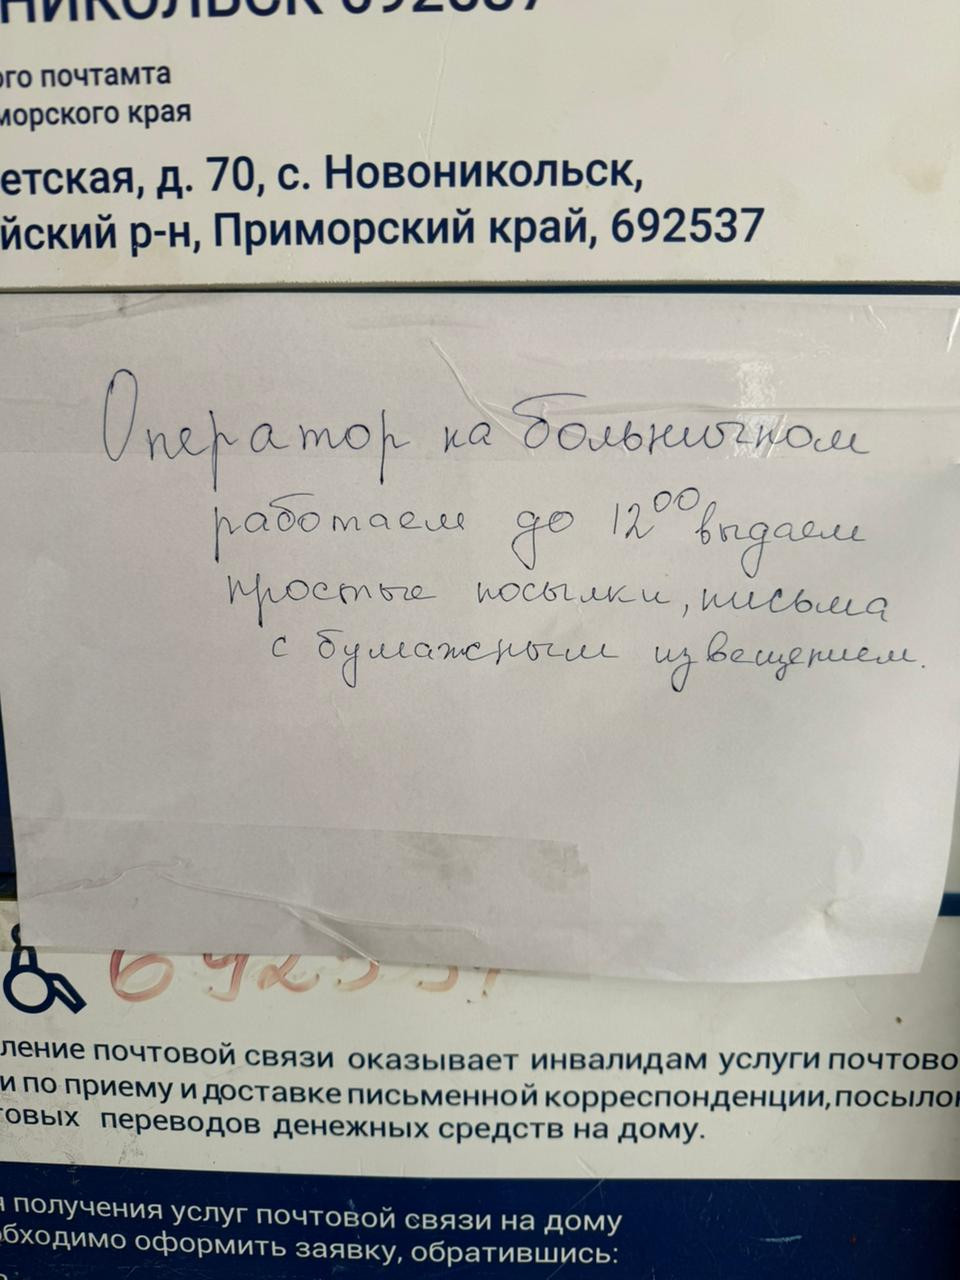 НИКОЛЬСК 692537
ого почтамта
морского края
етская, д. 70, с. Новоникольск,
йский р-н, Приморский край, 692537
Оператор на больничном
работаем до 12⁰⁰ выдаем
простые посылки, письма
с бумажным извещением.
692537
ление почтовой связи оказывает инвалидам услуги почтово
и по приему и доставке письменной корреспонденции, посылок
товых переводов денежных средств на дому.
я получения услуг почтовой связи на дому
обходимо оформить заявку, обратившись: